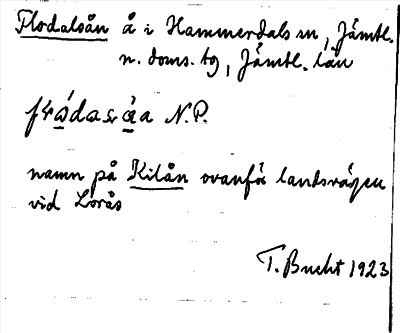 Flodalsån å i Hammerdals sn, Jämtl.
n. doms. tg, Jämtl. län
N.P.
namn på Kilån ovanför landsvägen
vid Lorås
T. Bucht 1923